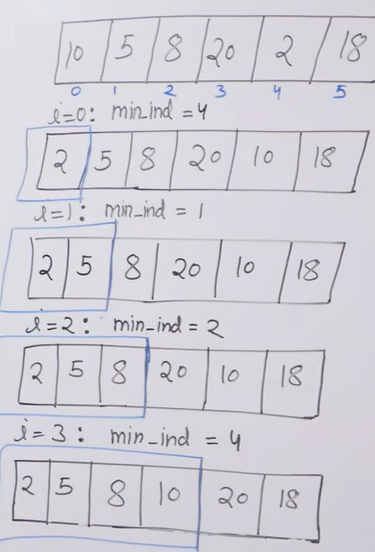 10 5 8 20 2 18
0 1 2 3 4 5
i=0: min_ind = 4
2 5 8 20 10 18
i=1: min_ind = 1
2 5 8 20 10 18
i=2: min_ind = 2
2 5 8 20 10 18
i=3: min_ind = 4
2 5 8 10 20 18